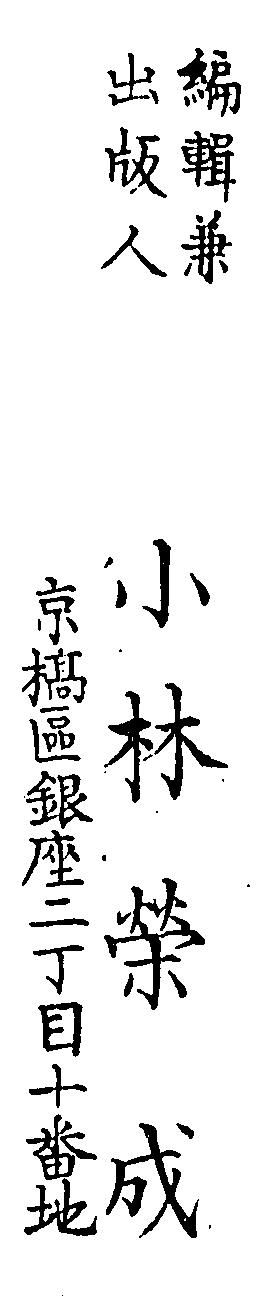 編輯兼
出版人
小林榮成
京橋區銀座二丁目十番地